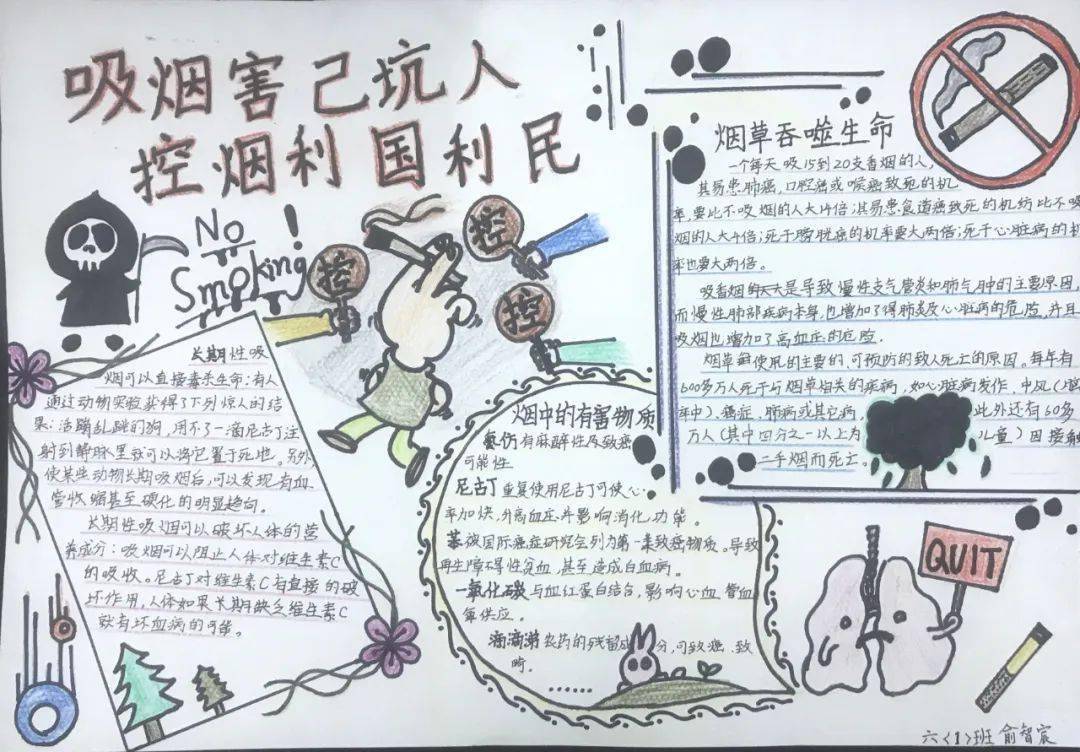 吸烟害己坑人
控烟利国利民
No
Smoking!
控
控
控
长期性吸
烟可以直接毒杀生命:有人
通过动物实验获得了下列惊人的结
果:活蹦乱跳的狗,用不了一滴尼古丁注
射到静脉里就可以将它置于死地。另外,
使某些动物长期吸烟后,可以发现:有血
管收缩甚至硬化的明显趋向。
长期性吸烟可以破坏人体的营
养成分:吸烟可以阻止人体对维生素C
的吸收。尼古丁对维生素C有直接的破
坏作用,人体如果长期缺乏维生素C
就有坏血病的可能。
烟中的有害物质
有麻醉性及致癌
可能性
尼古丁重复使用尼古丁可使心
率加快,升高血压并影响消化功能。
苯被国际癌症研究会列为第一类致癌物质。导致
再生障碍性贫血,甚至造成白血病。
一氧化碳与血红蛋白结合,影响心血管血
氧供应。
滴滴涕农药的残留成分,可致癌、致
畸。
……
烟草吞噬生命
一个每天吸15到20支香烟的人,
其易患肺癌,口腔癌或喉癌致死的机
率,要比不吸烟的人大14倍;其易患食道癌致死的机纺比不吸
烟的人大4倍;死于膀胱癌的机率要大两倍;死于心脏病的机
率也要大两倍。
吸香烟的是导致慢性支气管炎和肺气肿的主要原因,
而慢性肺部疾病本身,也增加了得肺炎及心脏病的危险,并且
吸烟也增加了高血压的危险。
烟草使用的主要的、可预防的致人死亡的原因。每年有
600多万人死于与烟草相关的疾病,如心脏病发作、中风(脑
卒中)、癌症、肺病或其它病,此外还有60多
万人(其中四分之一以上为儿童)因接触
二手烟而死亡。
QUIT
六<1>班 俞智宸